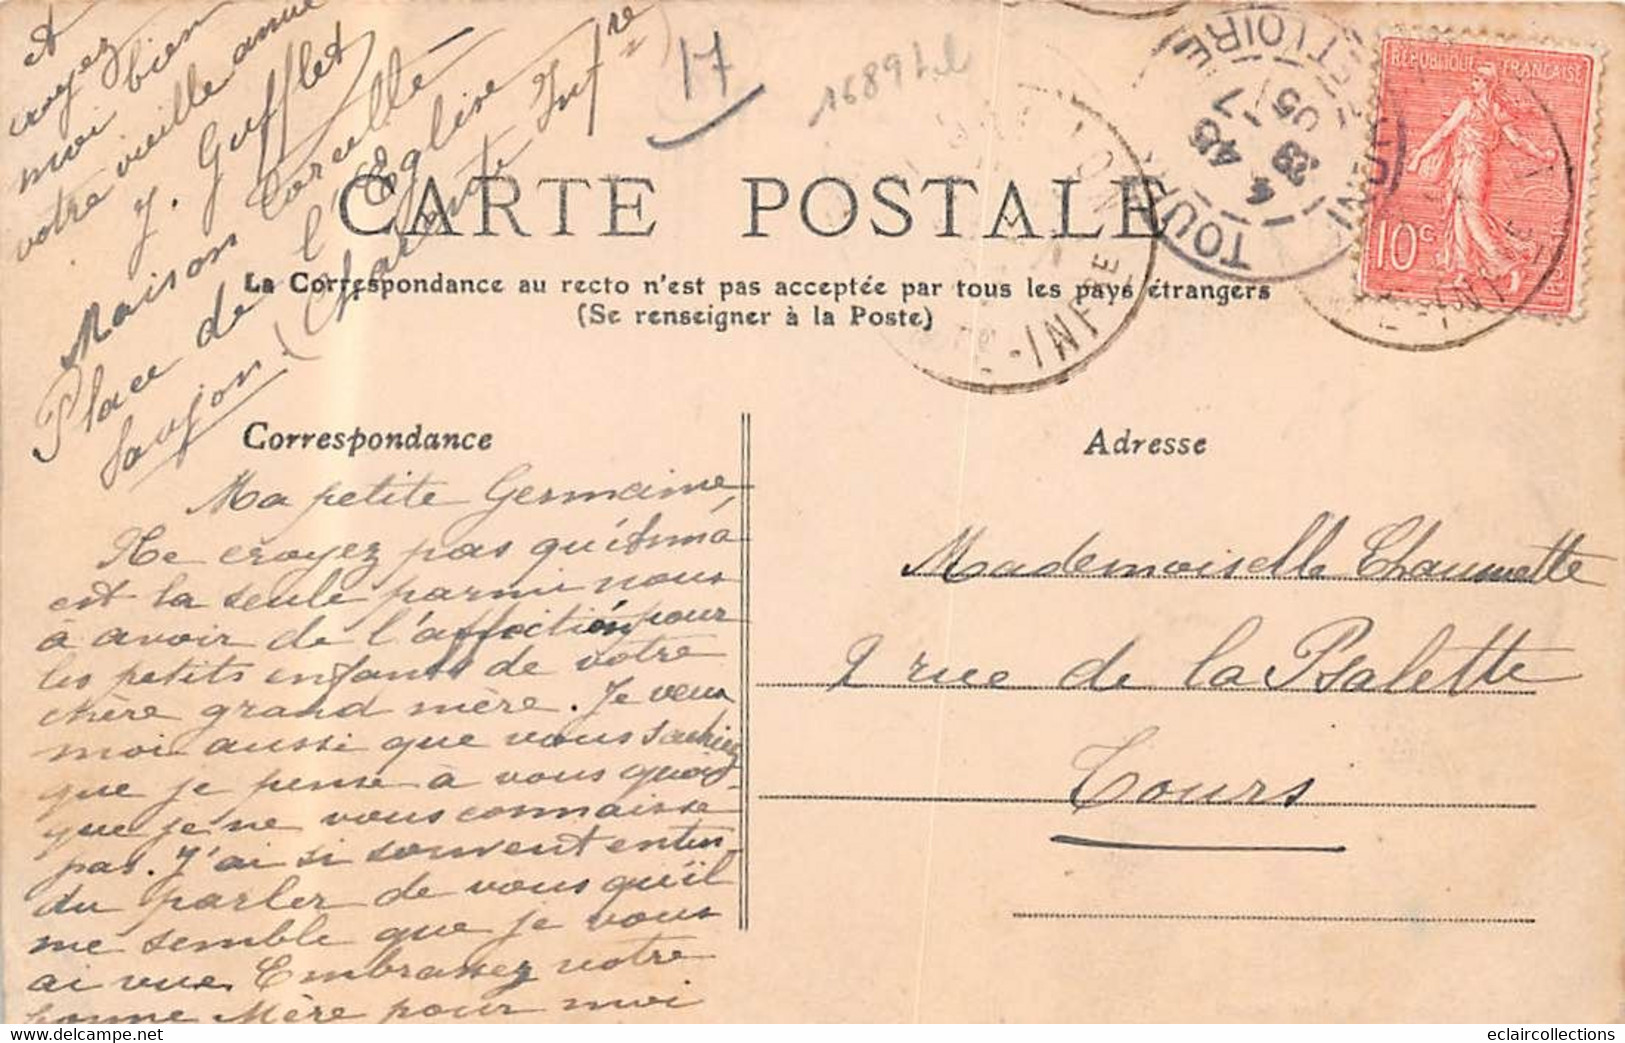 et
croyez
moi bien
votre vieille amie
J. Gufflet
Maison Corcellé
Place de l'Eglise
Saujon (Charente Infre)
17
16897
CARTE POSTALE
La Correspondance au recto n'est pas acceptée par tous les pays étrangers
(Se renseigner à la Poste)
RÉPUBLIQUE FRANÇAISE
10c
TOURS
Correspondance
Adresse
Ma petite Germaine,
Ne croyez pas qu'
est la seule parmi nous
à avoir de l'affection pour
les petits enfants de votre
chère grand mère. Je veux
moi aussi que vous sachiez
que je pense à vous quoi-
que je ne vous connaisse
pas. J'ai si souvent enten-
du parler de vous qu'il
me semble que je vous
ai vue. Embrassez votre
bonne Mère pour moi
Mademoiselle Chaumette
2 rue de la Psalette
Tours
eclaircollections